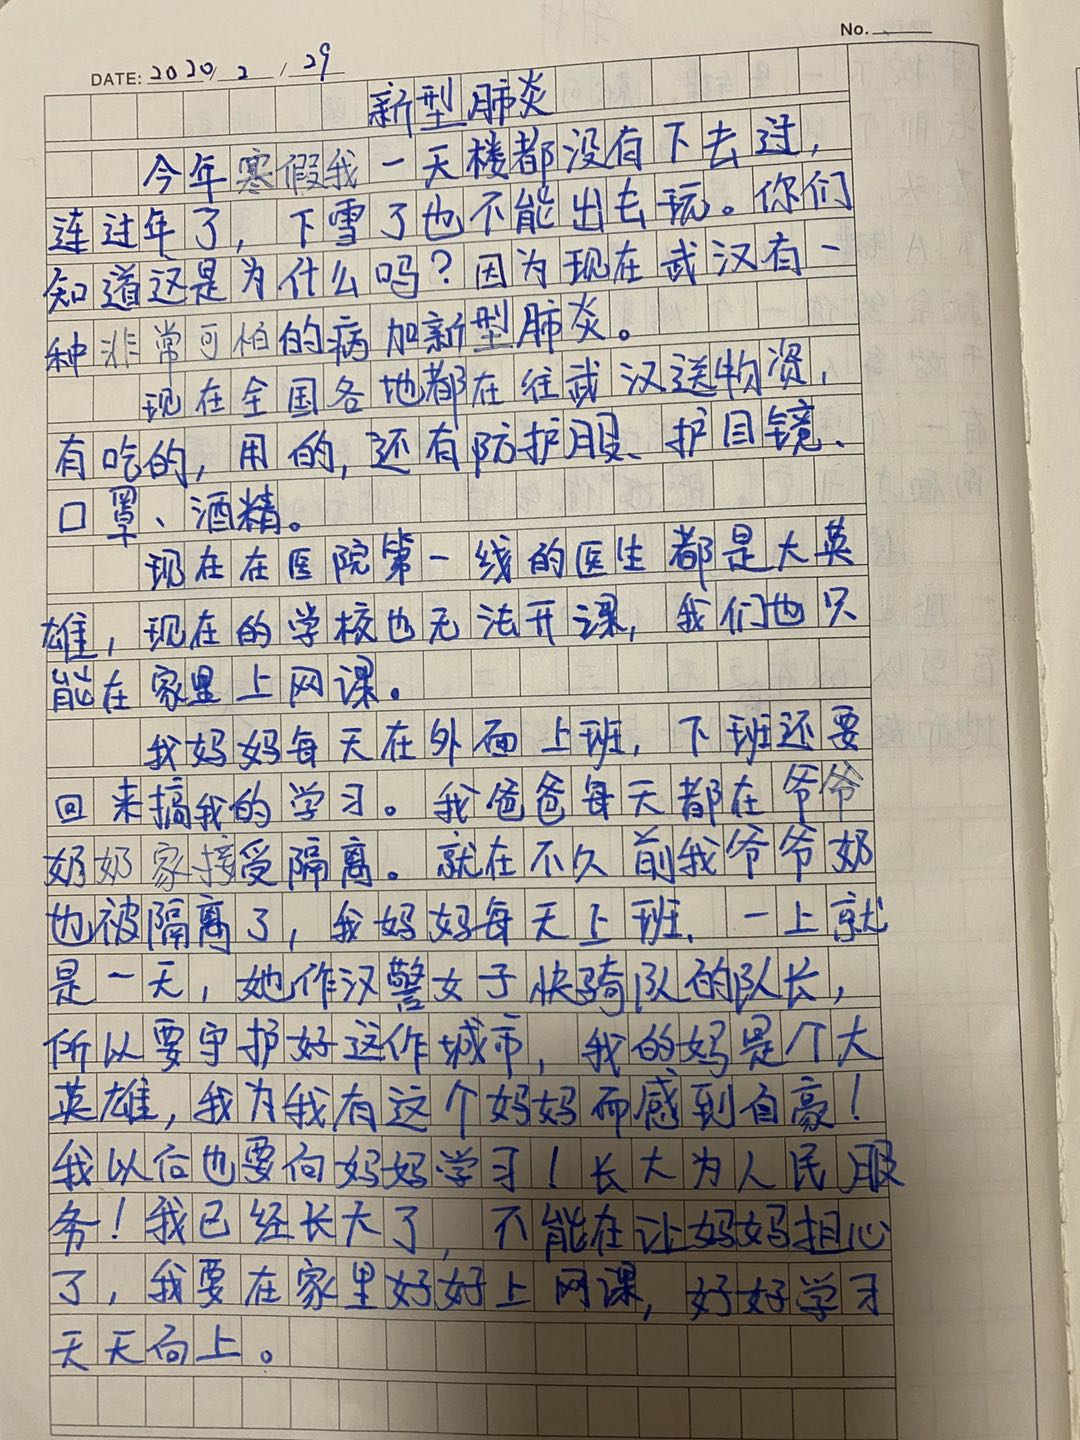 No.
DATE: 2020 / 2 / 29
新型肺炎
今年寒假我一天楼都没有下去过，
连过年了，下雪了也不能出去玩。你们
知道这是为什么吗？因为现在武汉有一
种非常可怕的病加新型肺炎。
现在全国各地都在往武汉送物资，
有吃的，用的，还有防护服、护目镜、
口罩、酒精。
现在在医院第一线的医生都是大英
雄，现在的学校也无法开课，我们也只
能在家里上网课。
我妈妈每天在外面上班，下班还要
回来搞我的学习。我爸爸每天都在爷爷
奶奶家接受隔离。就在不久前我爷爷奶
也被隔离了，我妈妈每天上班、一上就
是一天，她作汉警女子快骑队的队长，
所以要守护好这作城市，我的妈是个大
英雄，我为我有这个妈妈而感到自豪！
我以后也要向妈妈学习！长大为人民服
务！我已经长大了，不能在让妈妈担心
了，我要在家里好好上网课，好好学习
天天向上。